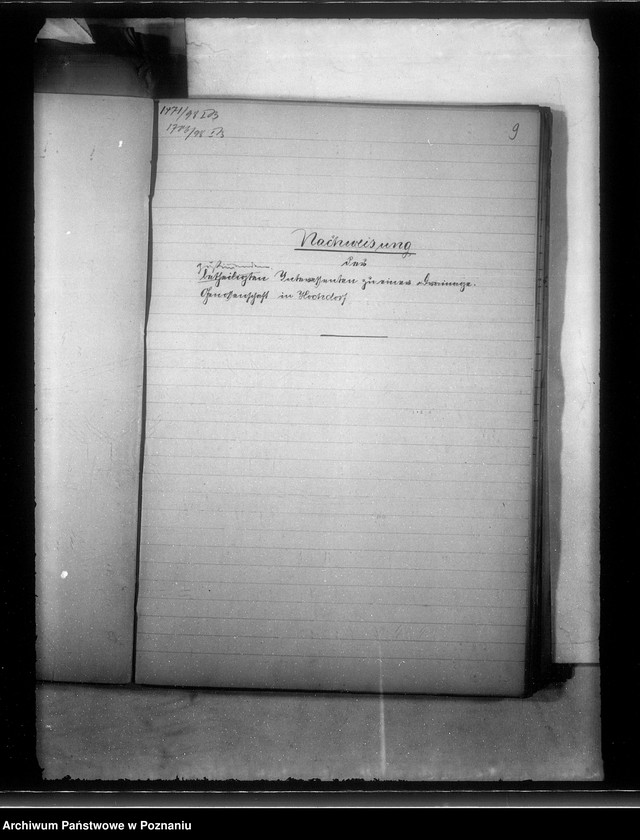 1771/98 I B
1773/98 I B
9
Nachweisung
der
zustimmenden
betheiligten Interessenten zu einer Drainage-
Genossenschaft in
Archiwum Państwowe w Poznaniu